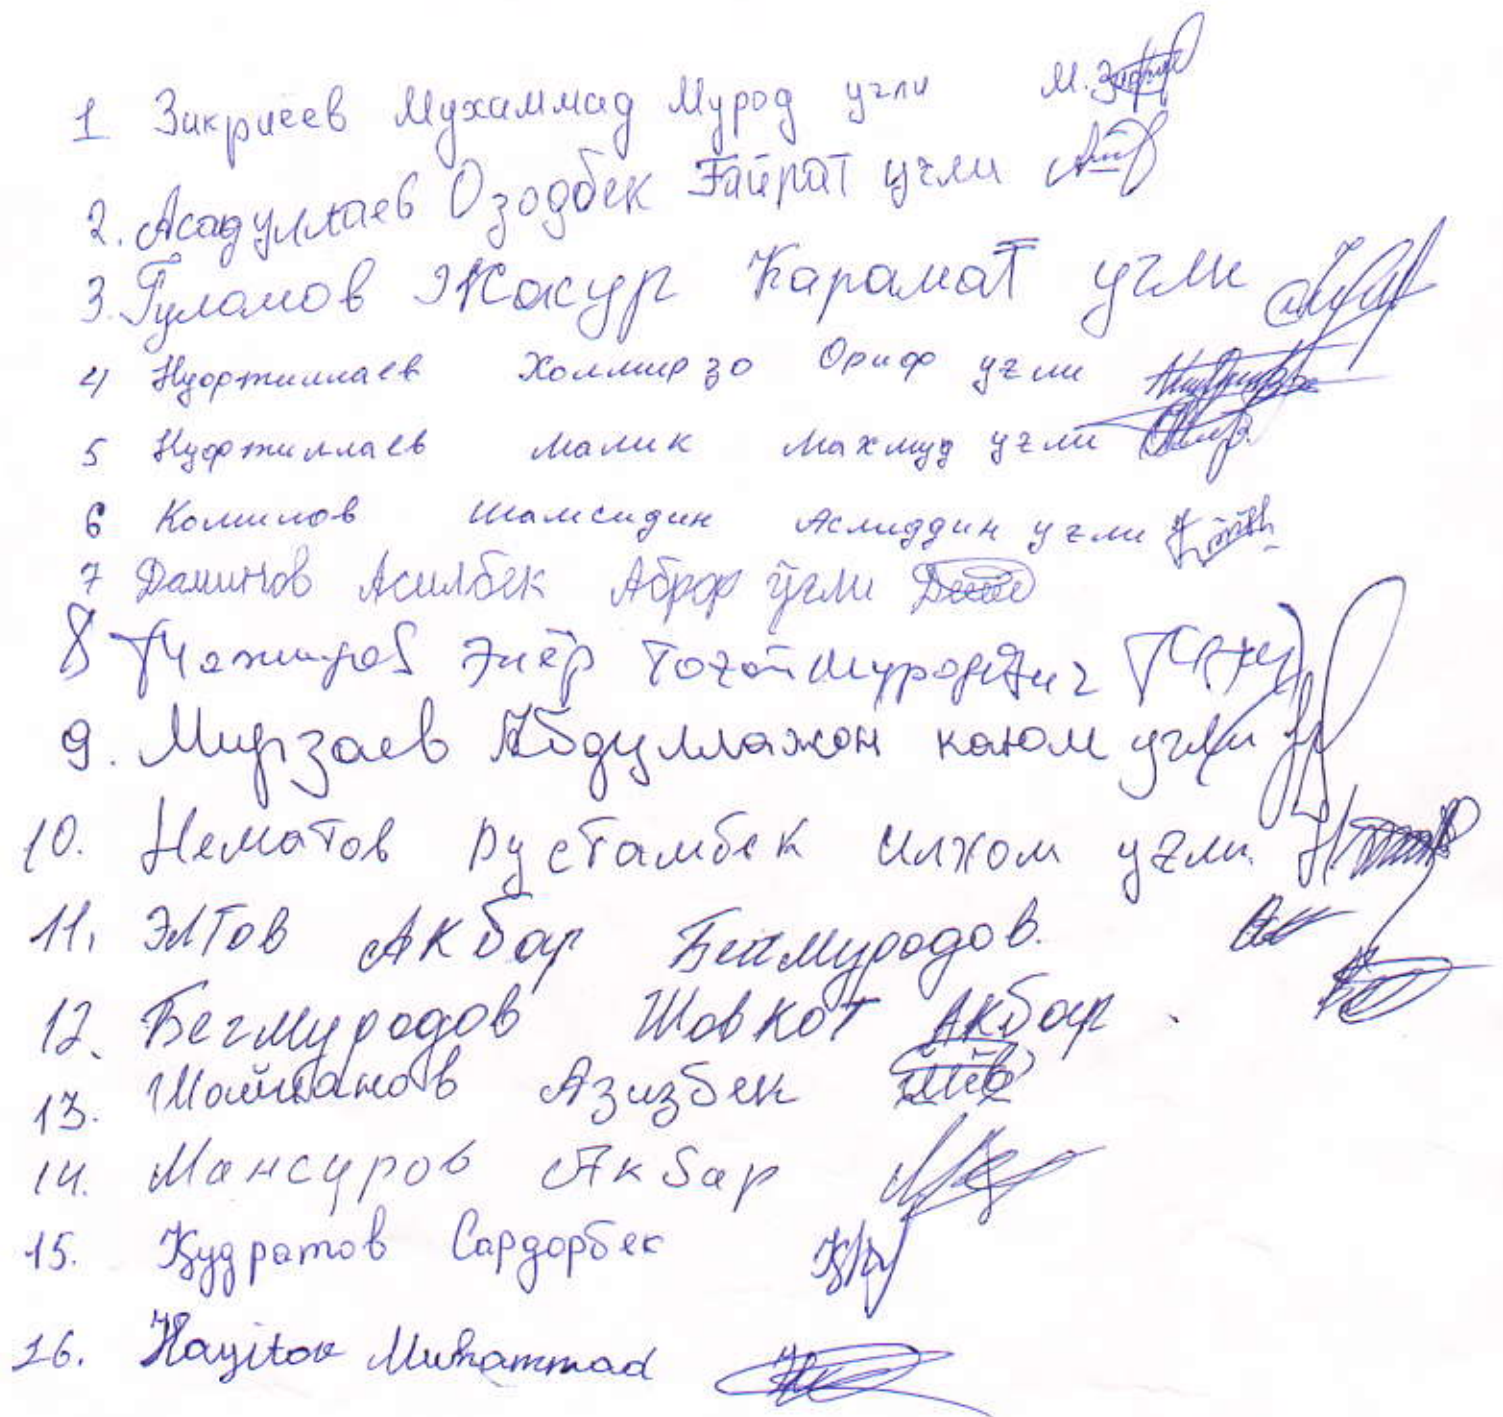 1 Зикриеев Мухаммад Мурод угли М.
2. Асадуллаев Озодбек Гайрат угли
3. Гуломов Жасур Карамат угли
4 Холмирзо Ориф угли
5 Малик Махмуд угли
6 Комилов Шамсидин Аслиддин угли
7 Даминов Асилбек Аброр ўгли
8 Элёр
9. Мирзаев Абдуллажон каюм угли
10. Нематов Рустамбек Илхом угли
11. Элтов Акбар Бегмуродов.
12. Бегмуродов Шовкот Акбар.
13. Азизбек
14. Мансуров Акбар
15. Қудратов Сардорбек
16. Hayitov Muhammad